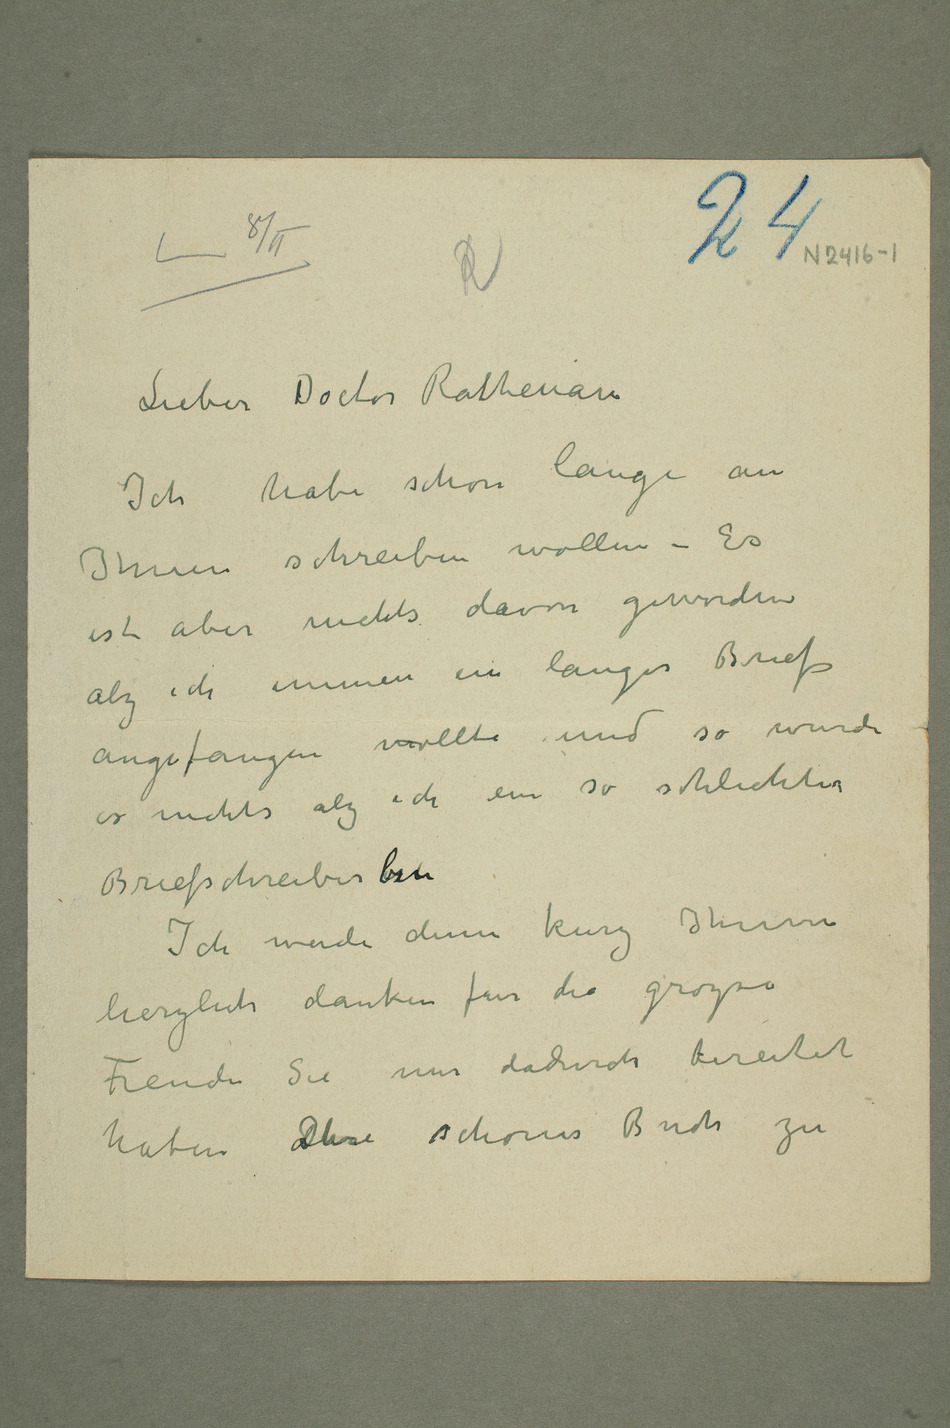 8/II
24
N2416-1
Lieber Doctor Rathenau
Ich habe schon lange an
Ihnen schreiben wollen – Es
ist aber nichts davon geworden
alz ich immer ein langes Brief
angefangen wollte und so wurde
es nichts alz ich ein so schlechter
Briefschreiber bin
Ich werde denn kurz Ihnen
herzlich danken für die grozse
Freude Sie mir dadurch bereitet
haben Ihre schönes Buch zu